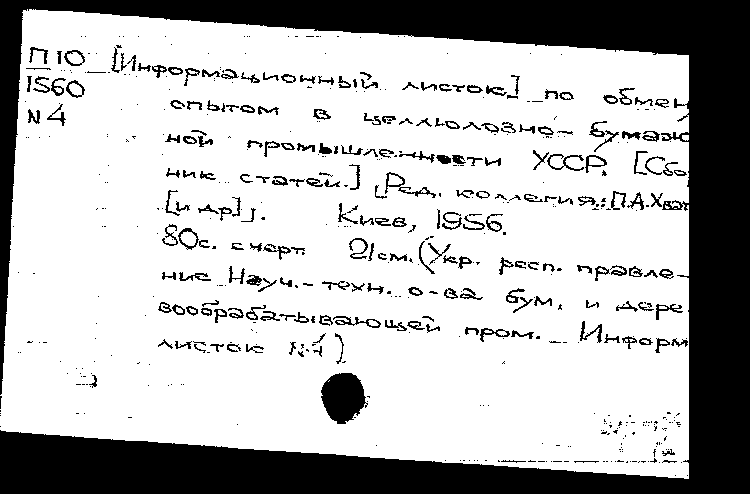 П 10 [Информационный листок] по обмен
1560 опытом в целлюлозно- бумаж
N 4 ной промышленности УССР. [Сбор
ник статей.] [Ред. коллегия: П.А.Хват
[и др]].  Киев, 1956.
80с. с черт 21см. (Укр. респ. правле-
ние Науч.-техн. о-ва бум. и дере
вообрабатывающей пром. Информ
листок N4)